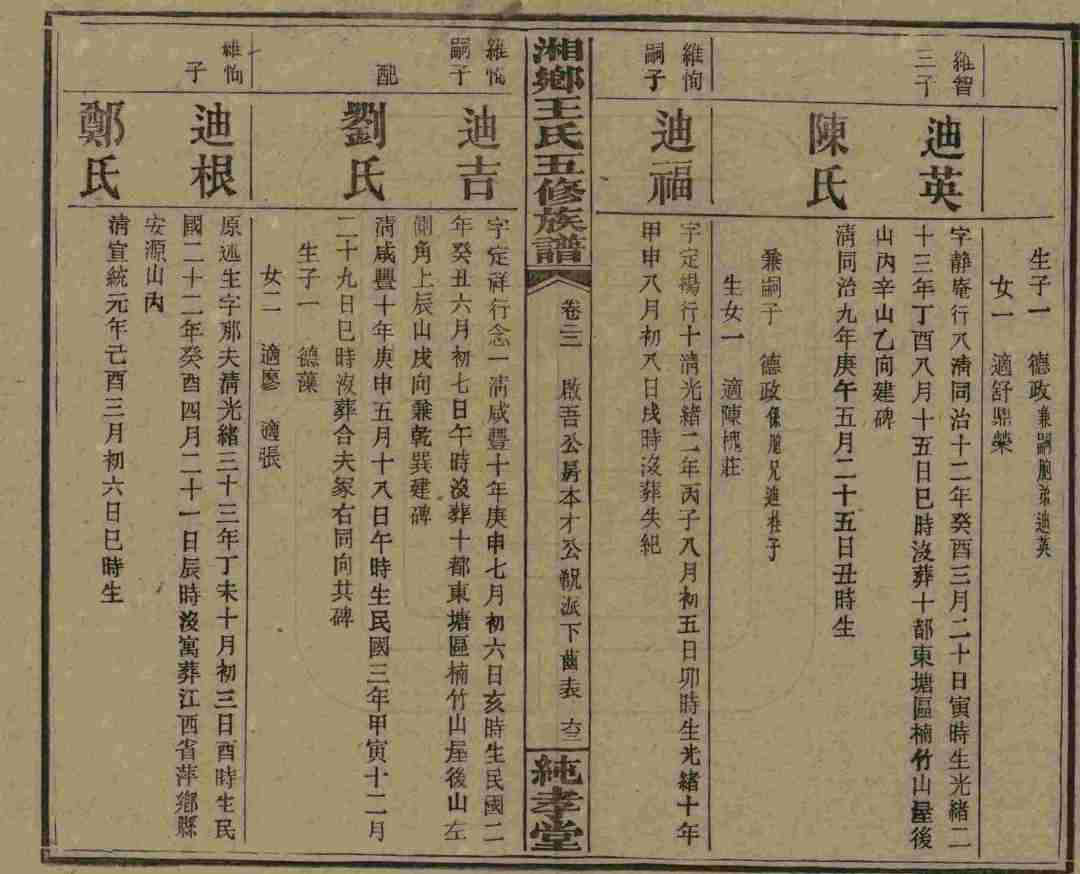 生子一 德政兼嗣胞弟迪英
女一 適舒鼎榮
維智
三子
迪英
字静庵行八清同治十二年癸酉三月二十日寅時生光緒二
十三年丁酉八月十五日巳時沒葬十都東塘區楠竹山屋後
山丙辛山乙向建碑
陳氏
清同治九年庚午五月二十五日丑時生
兼嗣子 德政係胞兄迪 子
生女一 適陳槐莊
維恂
嗣子
迪福
字定揚行十清光緒二年丙子八月初五日卯時生光緒十年
甲申八月初八日戌時沒葬失紀
湘鄉王氏五修族譜
卷二三 啟吾公房本才公 派下齒表
純孝堂
維恂
嗣子
迪吉
字定祥行念一清咸豐十年庚申七月初六日亥時生民國二
年癸丑六月初七日午時沒葬十都東塘區楠竹山屋後山左
側角上辰山戌向兼乾巽建碑
配
劉氏
清咸豐十年庚申五月十八日午時生民國三年甲寅十二月
二十九日巳時沒葬合夫冢右同向共碑
生子一 德藻
女二 適廖 適張
維恂
子
迪根
原述生字那夫清光緒三十三年丁未十月初三日酉時生民
國二十二年癸酉四月二十一日辰時沒寓葬江西省萍鄉縣
安源山內
鄭氏
清宣統元年己酉三月初六日巳時生